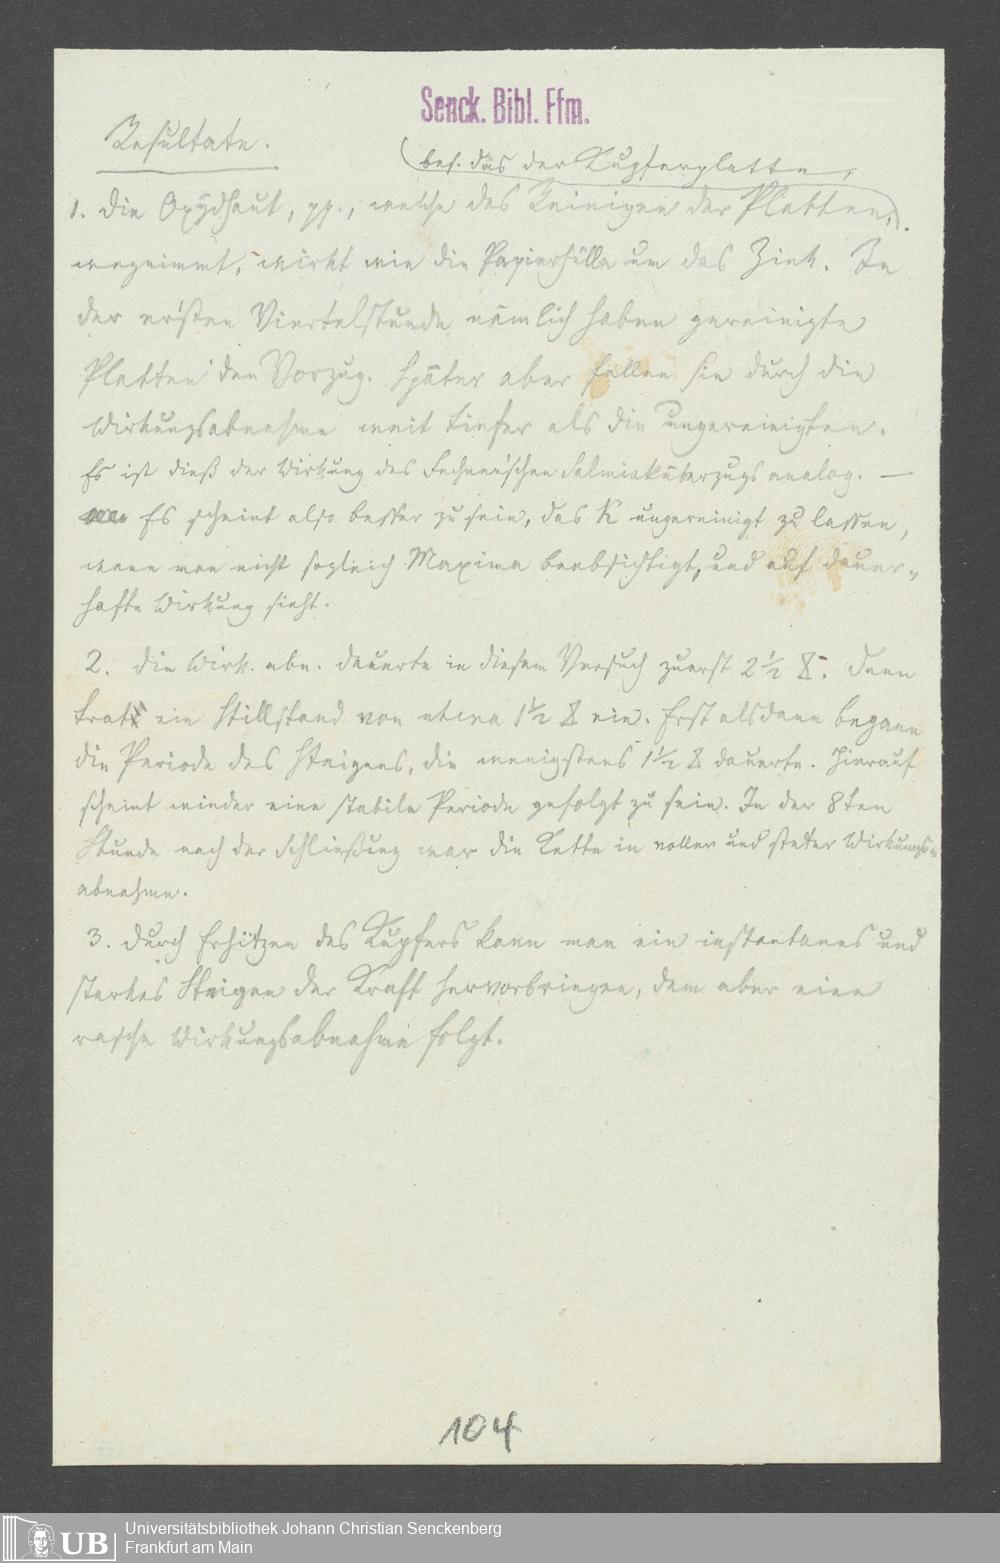 Senck. Bibl. Ffm.
Resultate.
(bes. das der Kupferplatte,
1. Die Oxydhaut, pp., welche das Reinigen der Platten,).
wegnimmt, wirkt wie die Papierhülle um das Zink. In
der ersten Viertelstunde nämlich haben gereinigte
Platten den Vorzug. Später aber fallen sie durch die
Wirkungsabnahme weit tiefer als die ungereinigten.
Es ist dieß der Wirkung des Fechner'schen Salmiaküberzugs analog. —
Es scheint also besser zu sein, das K ungereinigt zu lassen,
wenn man nicht sogleich Maxima beabsichtigt, und auf dauer-
hafte Wirkung sieht.
2. Die Wirk. abn. dauerte in diesem Versuch zuerst 2 1/2 . Dann
trat ein Stillstand von etwa 1 1/2 ein. Erst alsdann begann
die Periode des Steigens, die wenigstens 1 1/2 dauerte. Hierauf
scheint wieder eine stabile Periode gefolgt zu sein. In der 8ten
Stunde nach der Schließung war die Kette in voller und steter Wirkungs-
abnahme.
3. Durch Erhitzen des Kupfers kann man ein instantanes und
starkes Steigen der Kraft hervorbringen, dem aber eine
rasche Wirkungsabnahme folgt.
104
UB
Universitätsbibliothek Johann Christian Senckenberg
Frankfurt am Main